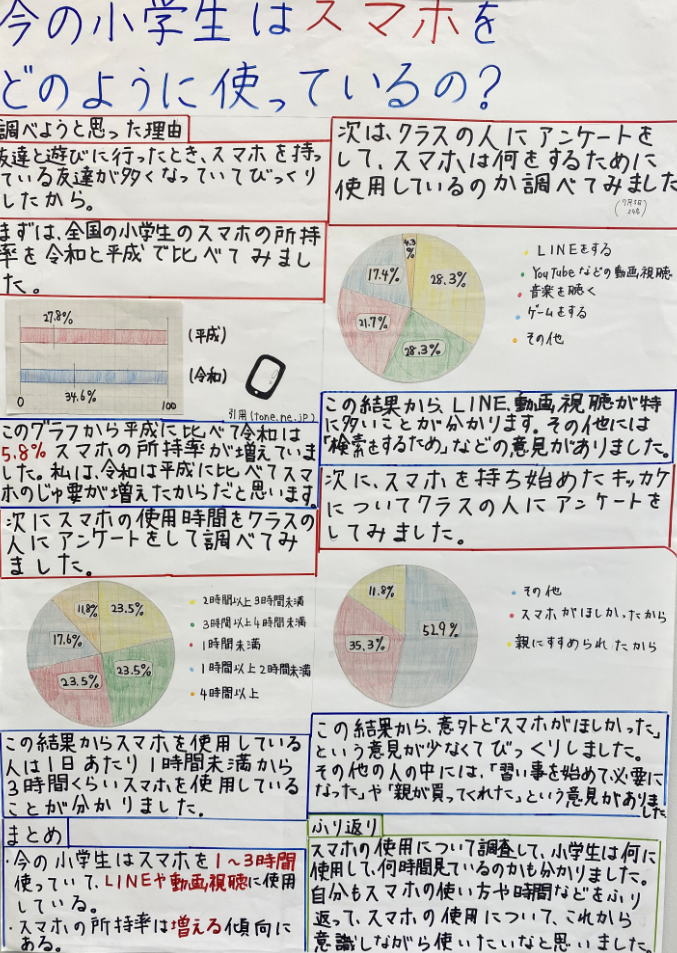 今の小学生はスマホを
どのように使っているの？
調べようと思った理由
友達と遊びに行ったとき、スマホを持っ
ている友達が多くなっていてびっくり
したから。
まずは、全国の小学生のスマホの所持
率を令和と平成で比べてみまし
た。
27.8%
(平成)
(令和)
0
34.6%
100
引用(tone.ne.jp)
このグラフから平成に比べて令和は
5.8% スマホの所持率が増えていま
した。私は、令和は平成に比べてスマ
ホのじゅ要が増えたからだと思います。
次にスマホの使用時間をクラスの
人にアンケートをして調べてみ
ました。
11.8%
23.5%
17.6%
23.5%
23.5%
・2時間以上3時間未満
・3時間以上4時間未満
・1時間未満
・1時間以上2時間未満
・4時間以上
この結果からスマホを使用している
人は1日あたり1時間未満から
3時間くらいスマホを使用している
ことが分かりました。
まとめ
・今の小学生はスマホを1〜3時間
使っていて、LINEや動画視聴に使用
している。
・スマホの所持率は増える傾向に
ある。
次は、クラスの人にアンケートを
して、スマホは何をするために
使用しているのか調べてみました
4.3%
17.4%
28.3%
21.7%
28.3%
・LINEをする
・YouTubeなどの動画視聴
・音楽を聴く
・ゲームをする
・その他
この結果から、LINE、動画視聴が特
に多いことが分かります。その他には
「検索をするため」などの意見がありました。
次に、スマホを持ち始めたキッカケ
についてクラスの人にアンケートを
してみました。
11.8%
52.9%
35.3%
・その他
・スマホがほしかったから
・親にすすめられたから
この結果から、意外と「スマホがほしかった」
という意見が少なくてびっくりしました。
その他の人の中には、「習い事を始めて、必要に
なった」や「親が買ってくれた」という意見がありま
した
ふり返り
スマホの使用について調査して、小学生は何に
使用して、何時間見ているのかも分かりました。
自分もスマホの使い方や時間などをふり
返って、スマホの使用について、これから
意識しながら使いたいなと思いました。